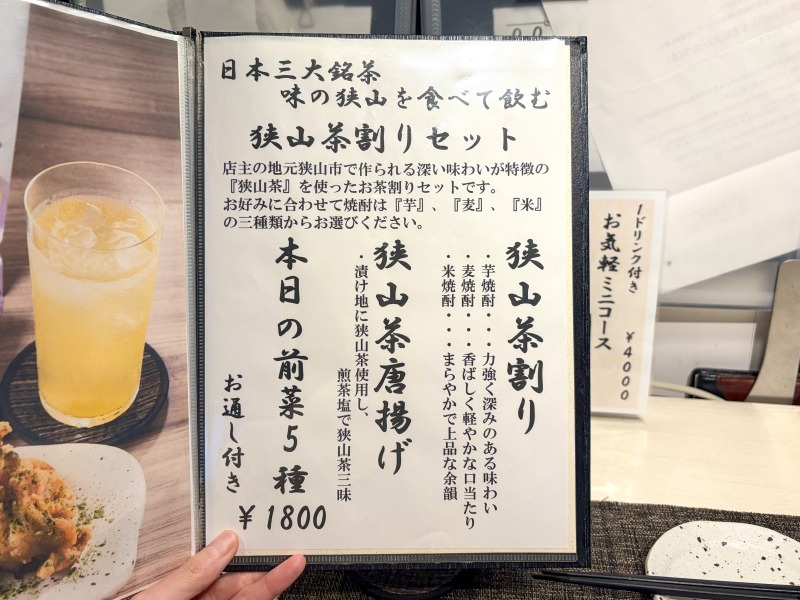 日本三大銘茶
味の狭山を食べて飲む
狭山茶割りセット
店主の地元狭山市で作られる深い味わいが特徴の
『狭山茶』を使ったお茶割りセットです。
お好みに合わせて焼酎は『芋』、『麦』、『米』
の三種類からお選びください。
狭山茶割り
・芋焼酎・・・力強く深みのある味わい
・麦焼酎・・・香ばしく軽やかな口当たり
・米焼酎・・・まろやかで上品な余韻
狭山茶唐揚げ
・漬け地に狭山茶使用し、
煎茶塩で狭山茶三昧
本日の前菜5種
お通し付き
¥1800
1ドリンク付き
お気軽ミニコース
¥4000